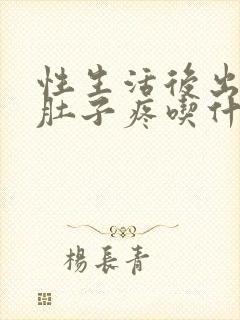 性生活後出
肚子疼喫什
楊長青